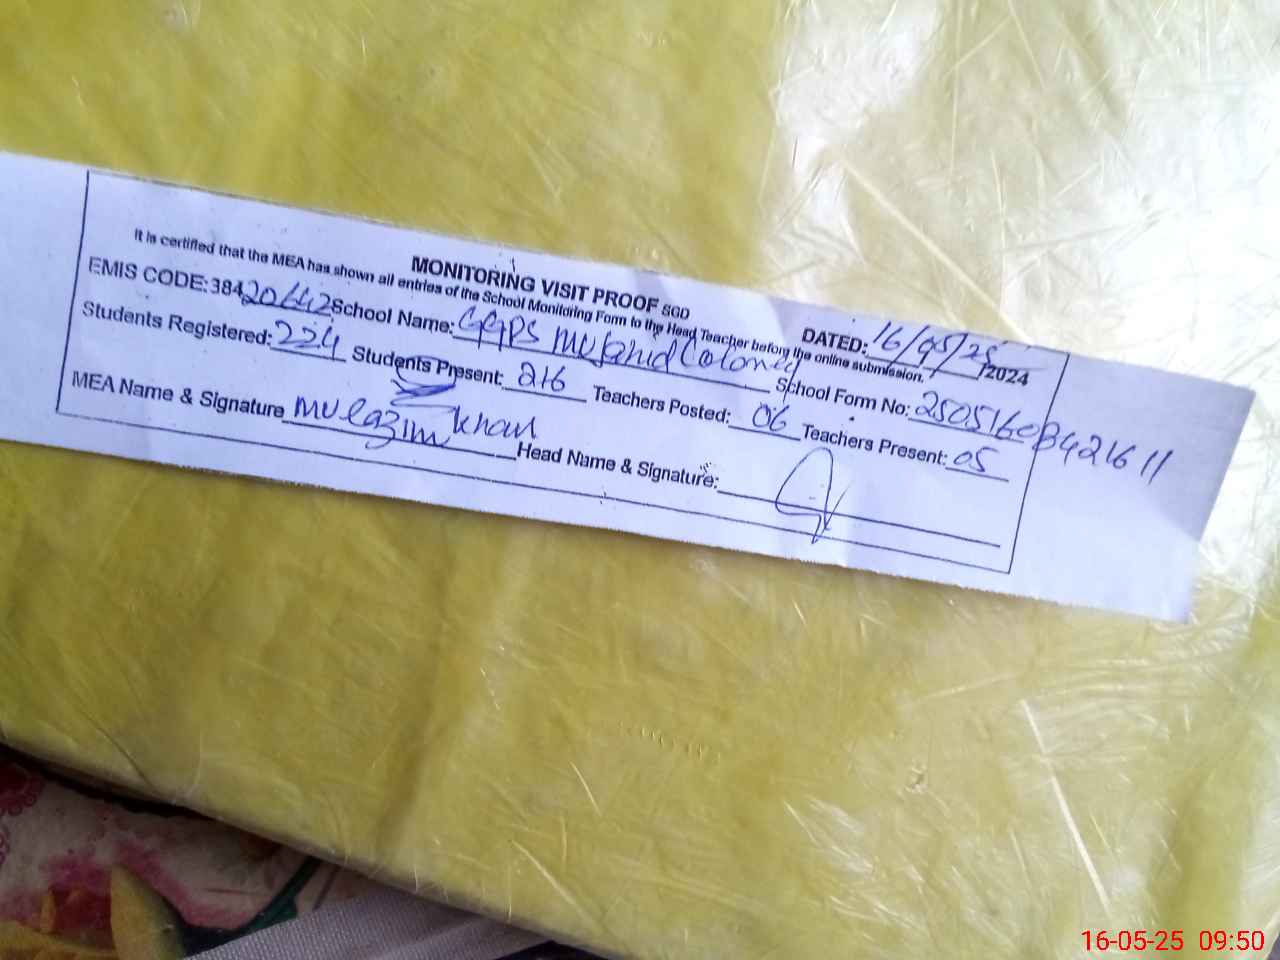 MONITORING VISIT PROOF SGD
DATED: 16/05/25 /2024
It is certified that the MEA has shown all entries of the School Monitoring Form to the Head Teacher before the online submission.
EMIS CODE: 384 20442 School Name: GGPS Mujahid Colony School Form No: 25051608421611
Students Registered: 224 Students Present: 216 Teachers Posted: 06 Teachers Present: 05
MEA Name & Signature Mulazim Khan Head Name & Signature:
16-05-25 09:50